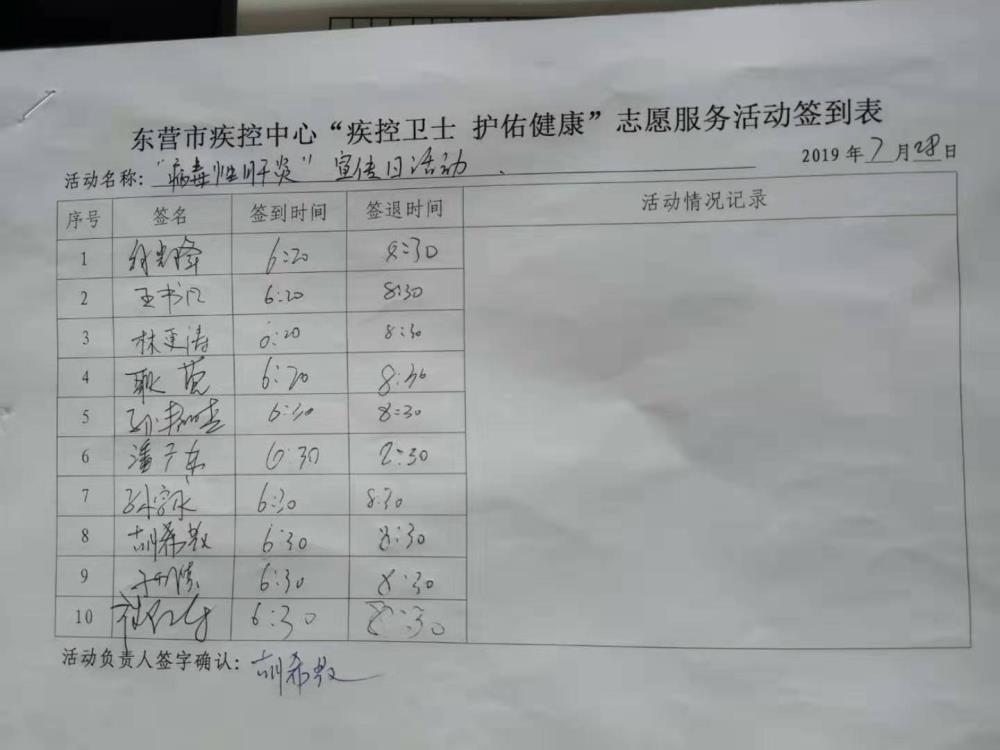 东营市疾控中心“疾控卫士 护佑健康”志愿服务活动签到表
活动名称：“病毒性肝炎”宣传日活动. 2019年7月28日
序号 签名 签到时间 签退时间 活动情况记录
1 6:20 8:30
2 王书 6:20 8:30
3 林更涛 6:20 8:30
4 耿 6:20 8:30
5 孙 6:30 8:30
6 潘广东 6:30 8:30
7 孙 6:30 8:30
8 胡希 6:30 8:30
9 6:30 8:30
10 6:30 8:30
活动负责人签字确认：胡希